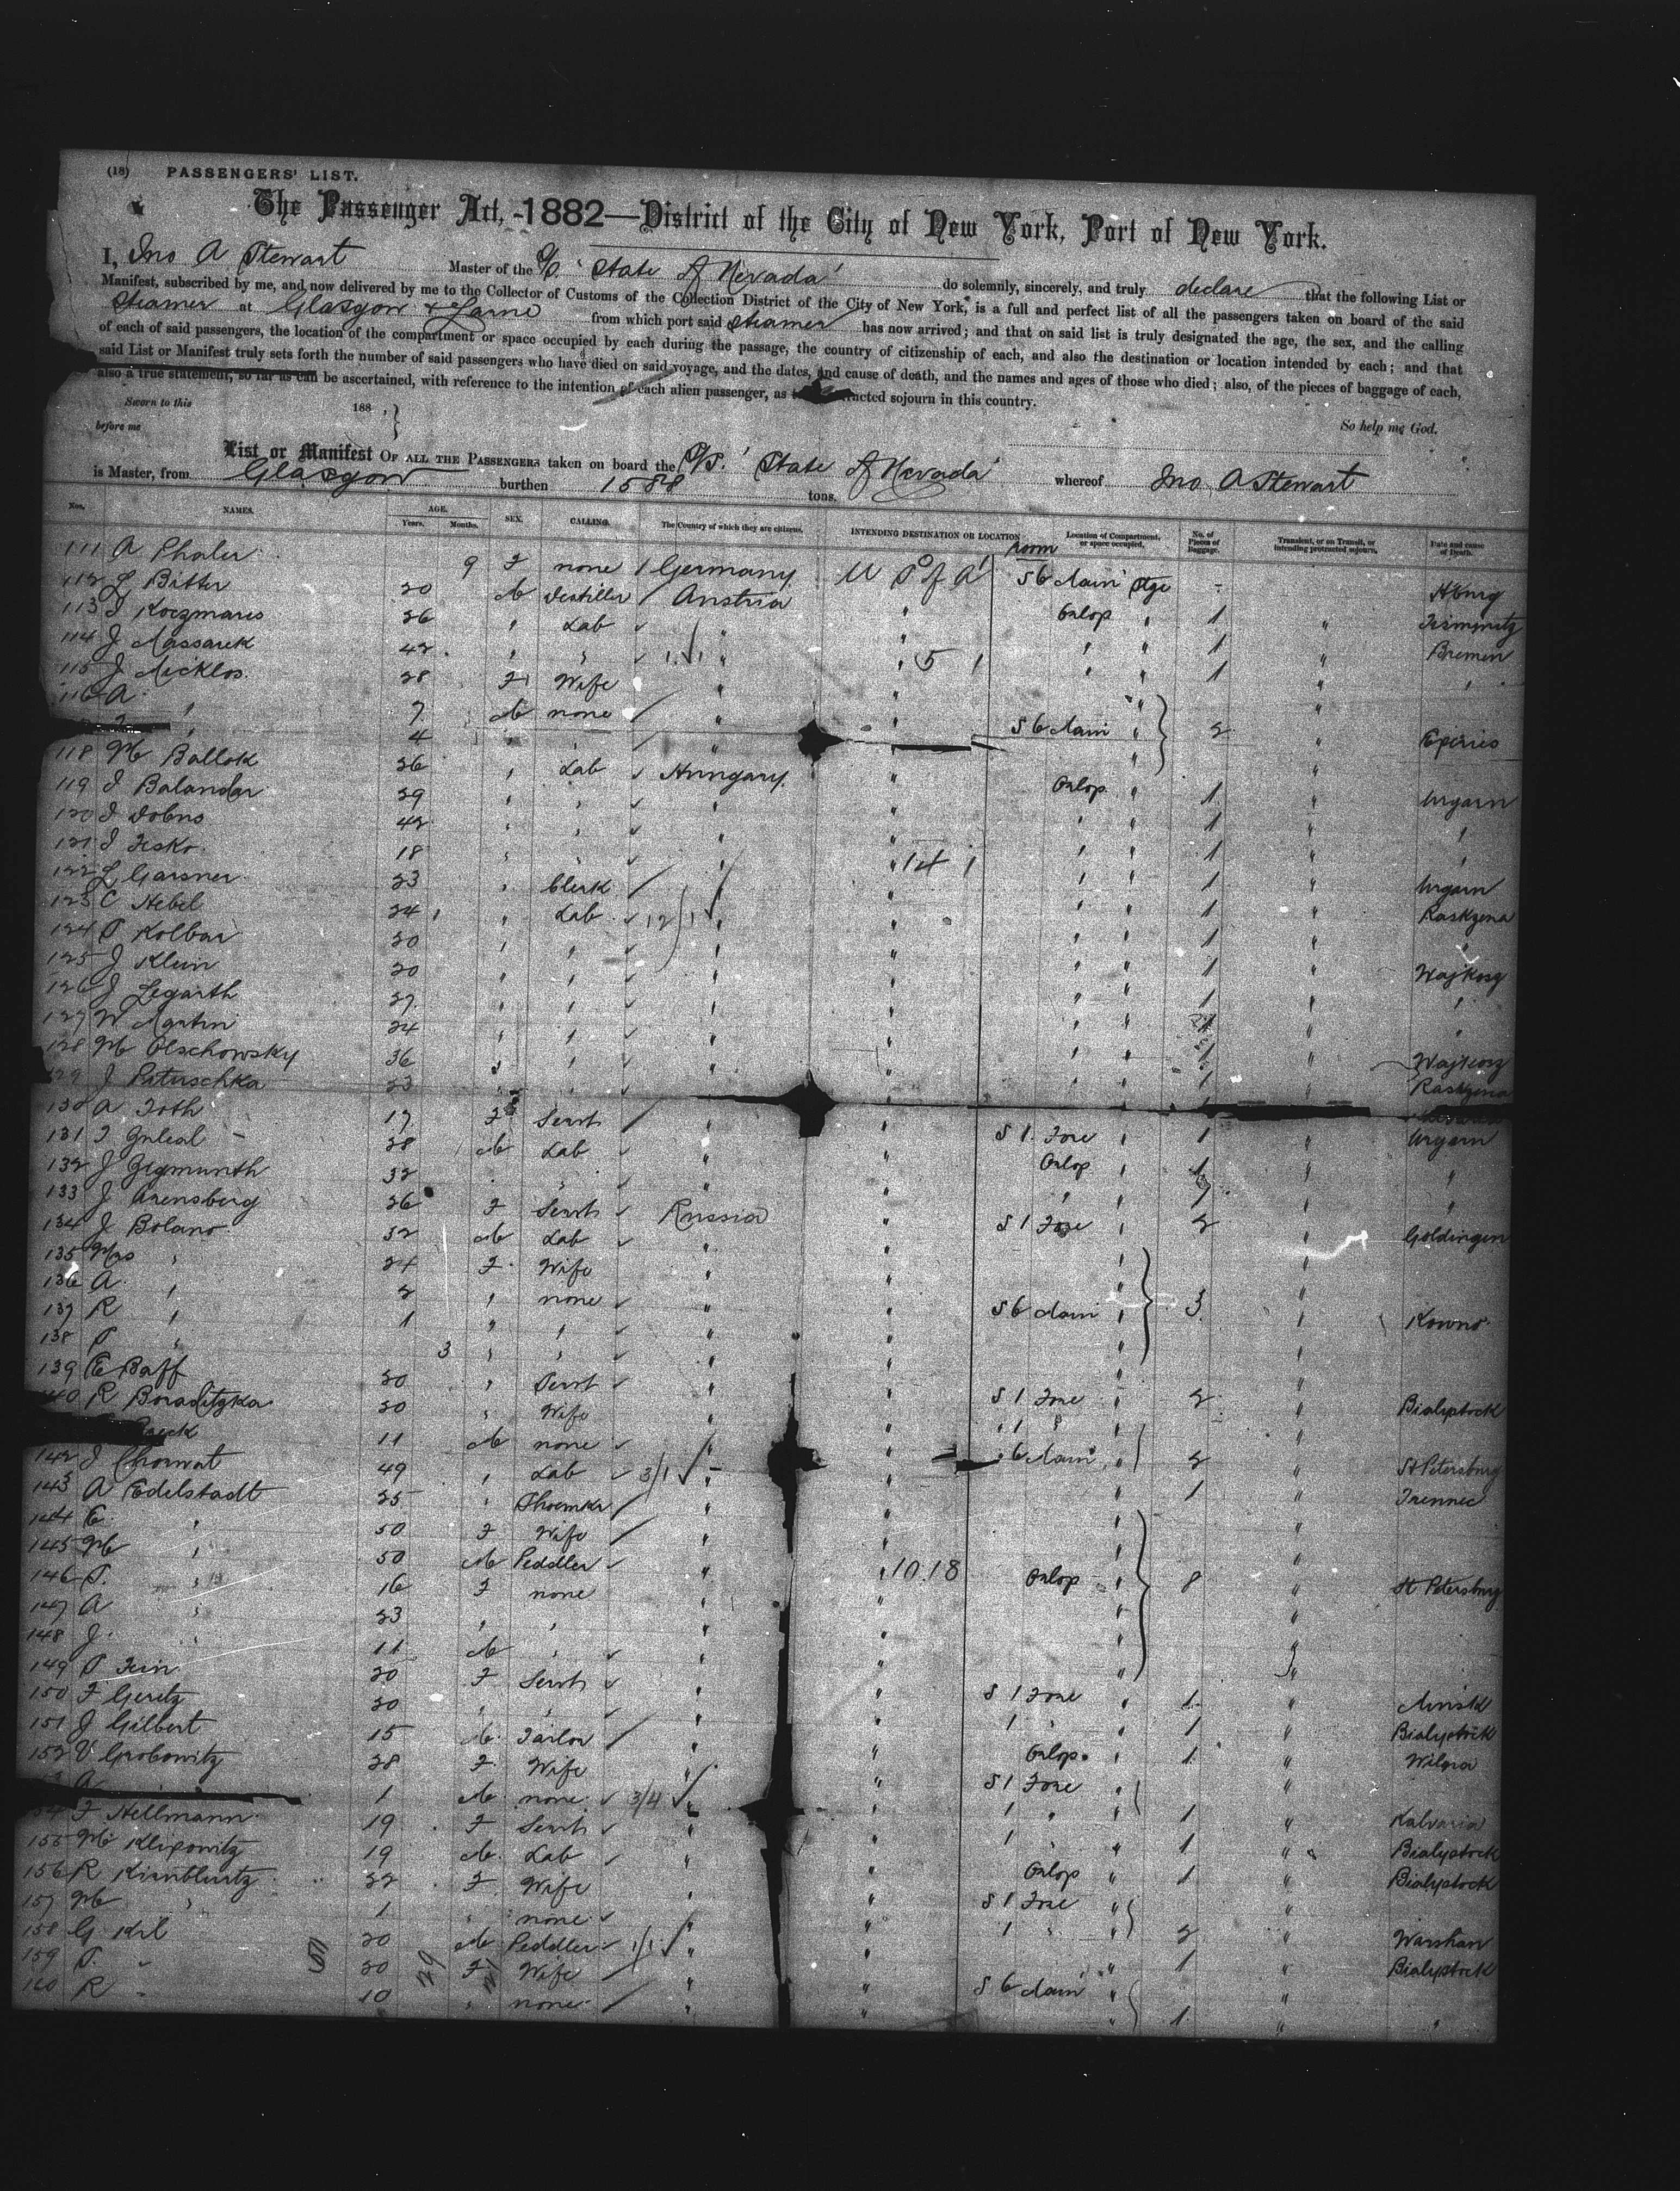 (18) PASSENGERS' LIST.
The Passenger Act, 1882—District of the City of New York, Port of New York.
I, Jno A Stewart Master of the S/S. "State of Nevada" do solemnly, sincerely, and truly declare that the following List or
Manifest, subscribed by me, and now delivered by me to the Collector of Customs of the Collection District of the City of New York, is a full and perfect list of all the passengers taken on board of the said
Steamer at Glasgow & Larne from which port said Steamer has now arrived; and that on said list is truly designated the age, the sex, and the calling
of each of said passengers, the location of the compartment or space occupied by each during the passage, the country of citizenship of each, and also the destination or location intended by each; and that
said List or Manifest truly sets forth the number of said passengers who have died on said voyage, and the dates, and cause of death, and the names and ages of those who died; also, of the pieces of baggage of each,
also a true statement, so far as can be ascertained, with reference to the intention of each alien passenger, as to protracted sojourn in this country.
Sworn to this 188 , So help me God.
before me
List or Manifest OF ALL THE PASSENGERS taken on board the S/S. "State of Nevada" whereof Jno A Stewart
is Master, from Glasgow burthen 1588 tons.
Nos. NAMES. AGE. Years. Months. SEX. CALLING. The Country of which they are citizens. INTENDING DESTINATION OR LOCATION Location of Compartment, or space occupied. No. of Pieces of Baggage. Transient, or on Transit, or intending protracted sojourn. Date and cause of Death.
Room
111 A Phaler 9 F none Germany U S of A S 6 Main Stge - Hburg
112 L Bitter 20 M Distiller Austria " Orlop " 1 "
113 J Koczmares 26 " Lab " " " " 1 " Bremen
114 J Massarek 42 " " " " 5 1 " " 1 " "
115 J Micklos 28 F Wife " " "
116 A " 7 M none " " S 6 Main " 2 " Eperies
4 " " " " "
118 M Ballok 26 " Lab Hungary " Orlop " 1 " Ungarn
119 J Balandar 29 " " " " " " 1 " "
120 J Dobns 42 " " " " " " 1 " "
121 J Fesko 18 " " " " 14 1 " " 1 " Ungarn
122 L Garsner 23 " Clerk " " " " 1 " Raskzena
123 C Hebel 24 " Lab 12 1 " " " " 1 " "
124 P Kolbar 20 " " " " " " 1 " Wajkosz
125 J Klein 20 " " " " " " 1 " "
126 J Legarth 27 " " " " " " 1 " "
127 W Martin 24 " " " " " " 1 " Wajkosz
128 M Olschowsky 36 " " " " " " 1 " Raskzena
129 J Paterschka 23 " " " "
130 A Toth 17 F Servt " " S 1 Fore " 1 " Ungarn
131 J Guleal 28 M Lab " " Orlop " 1 " "
132 J Zegmunth 32 " " " " " " "
133 J Arensberg 26 F Servt Russia " S 1 Fore " 2 " Goldingen
134 J Bolano 32 M Lab " " "
135 Mrs " 24 F Wife " " "
136 A " 2 " none " " S 6 Main " 3 " Kowno
137 R " 1 " " " " "
138 P " 3 " " " " "
139 E Baff 20 " Servt " " S 1 Fore " 2 " Bialystock
140 R Boraditzka 20 " Wife " " " 1 " "
11 M none " " 6 Main " 2 " St Petersburg
142 J Chorwat 49 " Lab 3/1 " " 1 "
143 A Edelstadt 25 " Shoemkr " " "
144 E " 50 F Wife " " "
145 M " 50 M Peddler " " 10.18 Orlop " 8 " St Petersburg
146 P. " 16 F none " " "
147 A " 23 " " " " "
148 J " 11 M " " " "
149 P Fein 20 F Servt " " S 1 Fore " 1 " Minsk
150 F Geretz 20 " " " " 1 " " 1 " Bialystock
151 J Gilbert 15 M Tailor " " Orlop " 1 " Wilna
152 V Grobowitz 28 F Wife " " S 1 Fore " "
A 1 M none 3/4 " " 1 " " 1 " Kalvaria
154 F Hellmann 19 F Servt " " 1 " " 1 " Bialystock
155 M Klipowitz 19 M Lab " " Orlop " 1 " Bialystock
156 R Kimblurtz 22 F Wife " " S 1 Fore "
157 M " 1 " none " " 1 " " 2 " Warshau
158 G Kil 20 M Peddler 1/1 " " " 1 " Bialystock
159 P. " 20 F Wife " " S 6 Main " "
160 R " 10 " none " " " 1 " "